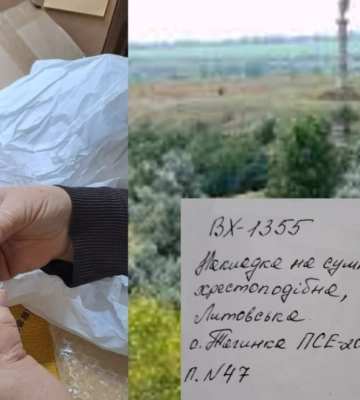 ВХ-1355
Накладка на сум
хрестоподібна,
Литовська
о. Тягинка ПСЕ-20
П. N47